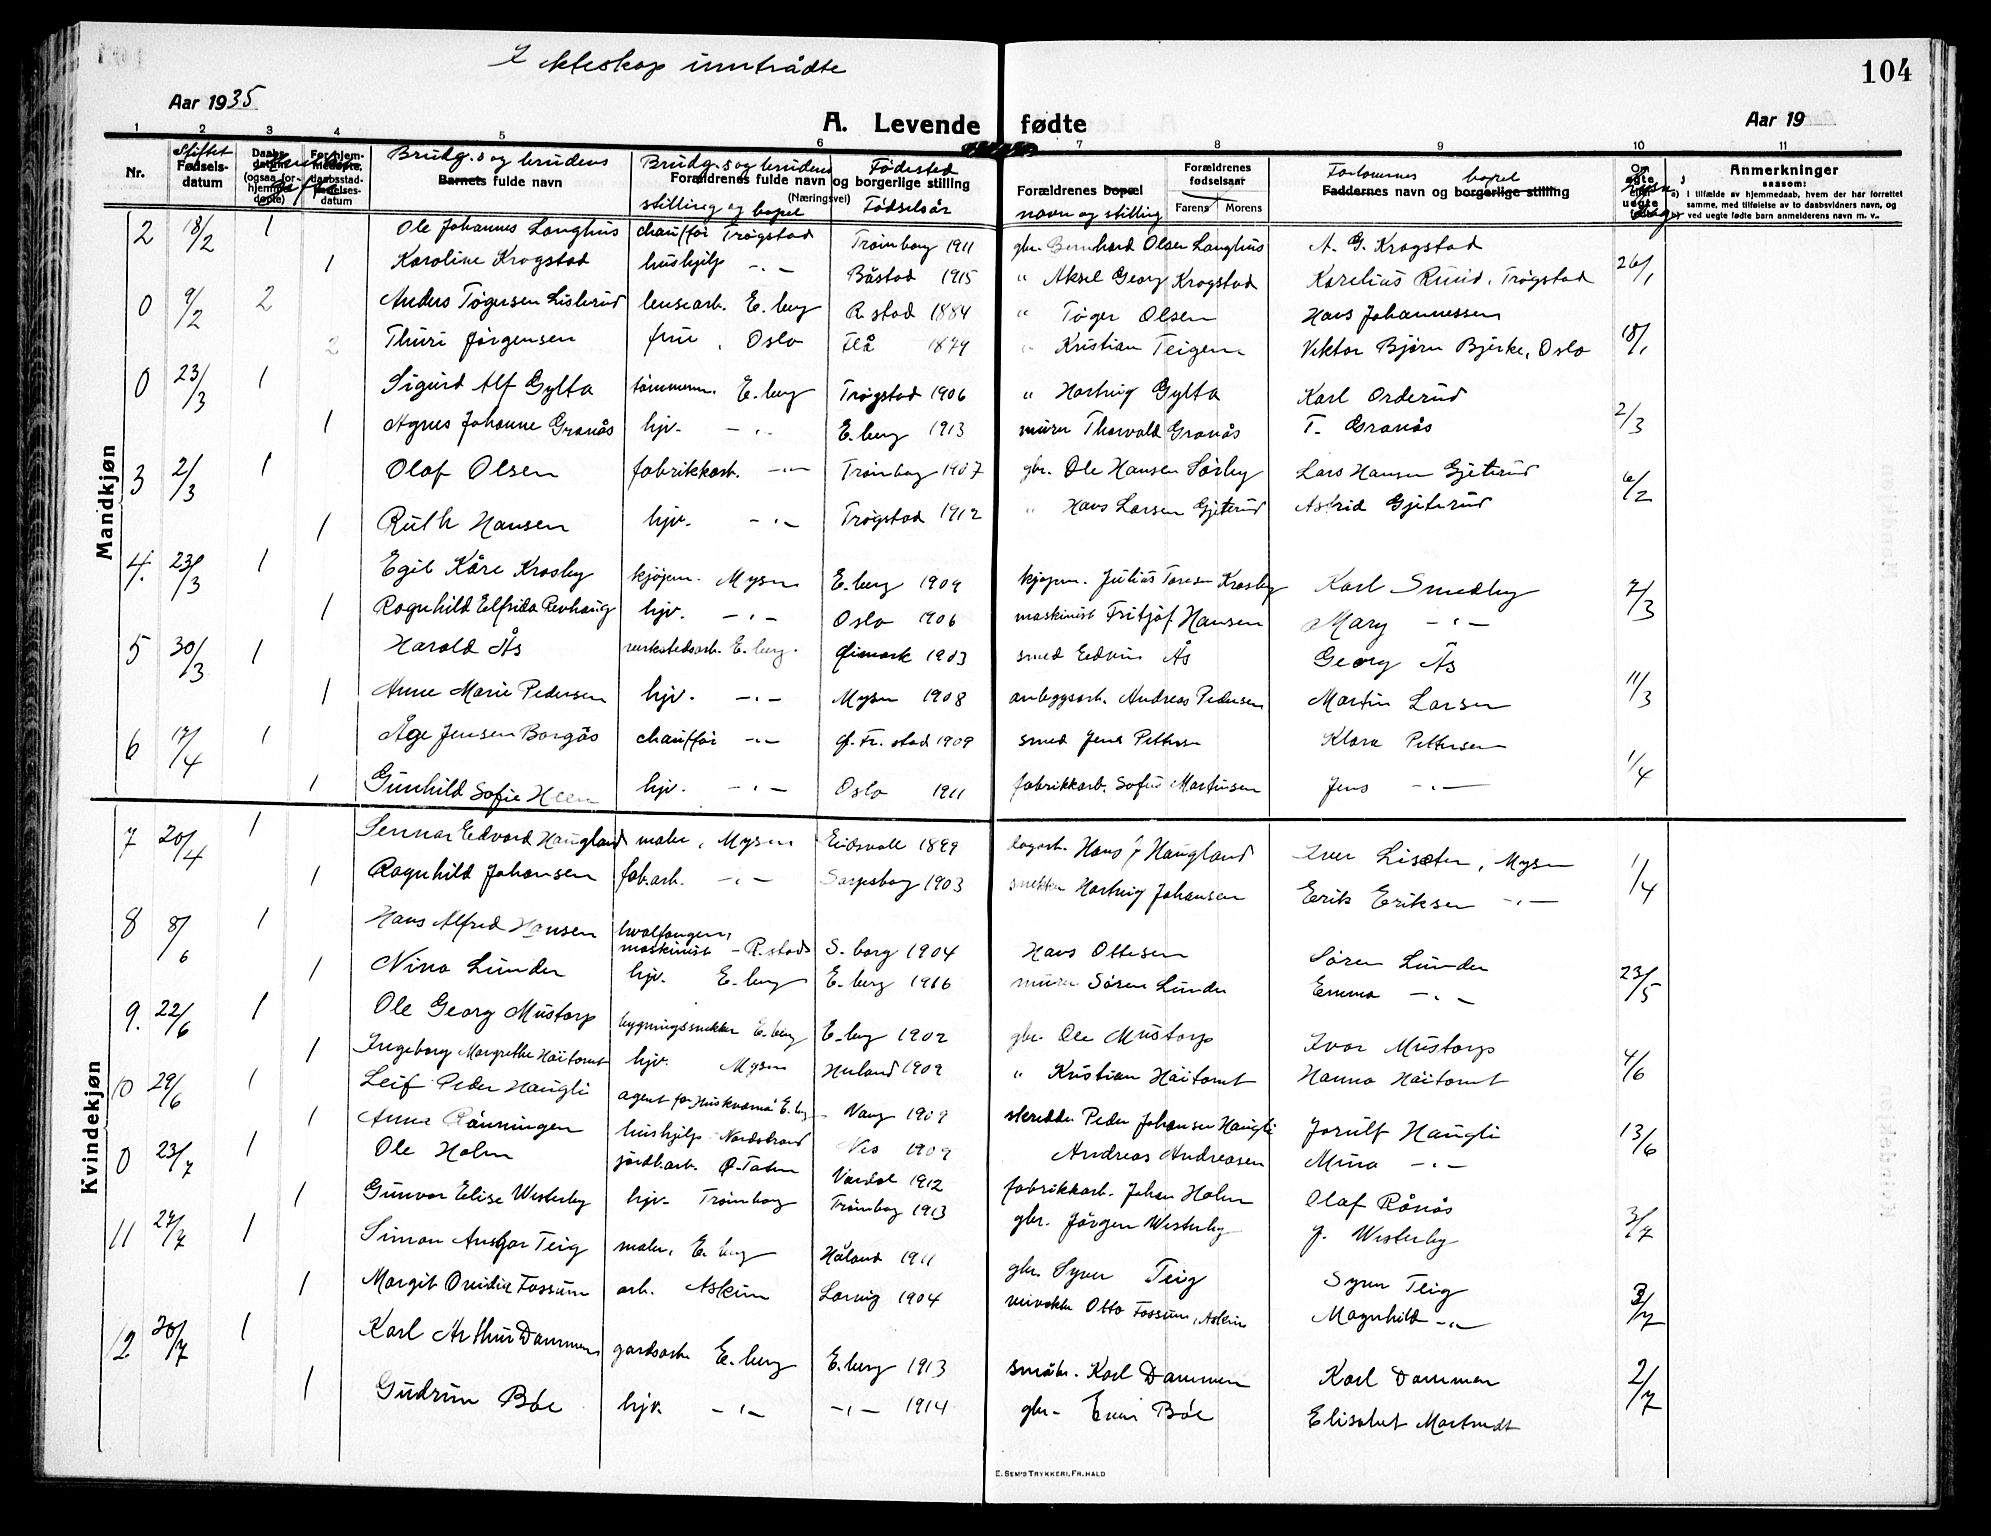 I ekteskap inntrådte
104
Aar 1935
A. Levende fødte
Aar 19
1 2 3 4 5 6 7 8 9 10 11
Nr.
Stiftet
Fødsels-
datum
Daabs-
datum
(ogsaa for
hjemme-
døpte)
For hjem-
medøpte,
daabsstad-
festelses-
datum
Brudg.s og brudens
Barnets fulde navn
Brudg.s og brudens Fødested
Forældrenes fulde navn og borgerlige stilling
(Næringsvei)
stilling og bopel Fødselsår
Forældrenes bopæl
navn og stilling
Forældrenes
fødselsaar
Farens Morens
Forlovernes bopel
Faddernes navn og borgerlige stilling
Om
ægte
uegte
Anmerkninger
saasom:
I tilfælde av hjemmedaab, hvem der har forrettet
samme, med tilføielse av to daabsvidners navn, og
ved uegte fødte barn anmelderens navn m. v.
Mandkjøn
2 18/2 1 Ole Johannes Langhus chauffør Trøgstad Trømborg 1911 gbr. Bernhard Olsen Langhus A. G. Krogstad
1 Karoline Krogstad hushjelp -"- Båstad 1915 " Aksel Georg Krogstad Karelius Ruud, Trøgstad 26/1
0 9/2 2 Anders Tøgersen Lislerud lensearb. E.berg R.stad 1884 " Tøger Olsen Hans Johannessen
2 Thuri Jørgensen frue, Oslo Flå 1879 " Kristian Teigen Viktor Bjørn Bjerke, Oslo 18/1
0 23/3 1 Sigurd Alf Gylta tømmerm. E.berg Trøgstad 1906 " Hartvig Gylta Karl Orderud
1 Agnes Johanne Granås hjv. -"- E.berg 1913 murer Thorvald Granås T. Granås 2/3
3 2/3 1 Olaf Olsen fabrikkarb. -"- Trømborg 1907 gbr. Ole Hansen Sørby Lars Hansen Gjeterud
1 Ruth Hansen hjv. -"- Trøgstad 1912 " Hans Larsen Gjeterud Astrid Gjeterud 6/2
4. 23/3 1 Egil Kåre Krosby kjøpm. Mysen E.berg 1909 kjøpm. Julius Krosby Karl Smedby
1 Ragnhild Elfrida Revhaug hjv. -"- Oslo 1906 maskinist Fritjof Hansen Mary -"- 7/3
5 30/3 1 Harald Ås verkstedsarb. E.berg. Ø.mark 1903 smed Edvin Ås Georg Ås
1 Anne Marie Pedersen hjv. -"- Mysen 1908 anleggsarb. Andreas Pedersen Martin Larsen 11/3
6 17/4 1 Åge Jensen Borgås chauffør -"- Gl. Fr.stad 1909 smed Jens Pettersen Klara Pettersen
1 Gunhild Sofie Heen hjv. -"- Oslo 1911 fabrikkarb. Sofus Martinsen Jens -"- 1/4
Kvindekjøn
7 20/4 1 Sennar Edvard Haugland maler, Mysen Eidsvoll 1899 Hans J Haugland Iver Liseter, Mysen
1 Ragnhild Johansen fab.arb. -"- Sarpsborg 1903 snekker Hartvig Johansen Erik Eriksen -"- 1/4
8 8/6 1 Hans Alfred Hansen hvalfanger,
maskinist - R.stad S.borg 1904 Hans Ottesen Søren Lunder
1 Nina Lunder hjv. E.berg E.berg 1916 murer Søren Lunder Emma -"- 23/5
9. 22/6 1 Ole Georg Mustorp bygningssnekker E.berg E.berg 1902 gbr. Ole Mustorp Ivar Mustorp
1 Ingeborg Margrethe Häitomt hjv. Mysen Hurland 1909 " Kristian Häitomt Hanna Häitomt 4/6
10 29/6 1 Leif Peder Haugli agent for Huskvarna E.berg Vang 1909 skredder Peder Johansen Haugli Jorulf Haugli
1 Anna Rønningen hushjelp Nordstrand Nes 1909 Andreas Andreasen Mina -"- 13/6
0 23/7 1 Ole Holm jordb.arb. Ø.Toten Vardal 1912 fabrikkarb. Johan Holm Olaf Rånås
1 Gunvor Elise Westerby hjv. Trømborg Trømborg 1913 gbr. Jørgen Westerby J. Westerby 3/7
11 27/7 1 Simon Ansgar Teig maler, E.berg Håland 1911 gbr. Syver Teig Syver Teig
1 Margit Ovidia Fossum arb. Askim Larvig 1904 Otto Fossum, Askim Magnhild -"- 3/7
12 20/7 1 Karl Arthur Dammen gardsarb. E.berg E.berg 1913 småbr. Karl Dammen Karl Dammen
1 Gudrun Bøe hjv. -"- -"- 1914 gbr. Even Bøe Elisabet Martnedt 2/7
E. SEM'S TRYKKERI, FR.HALD